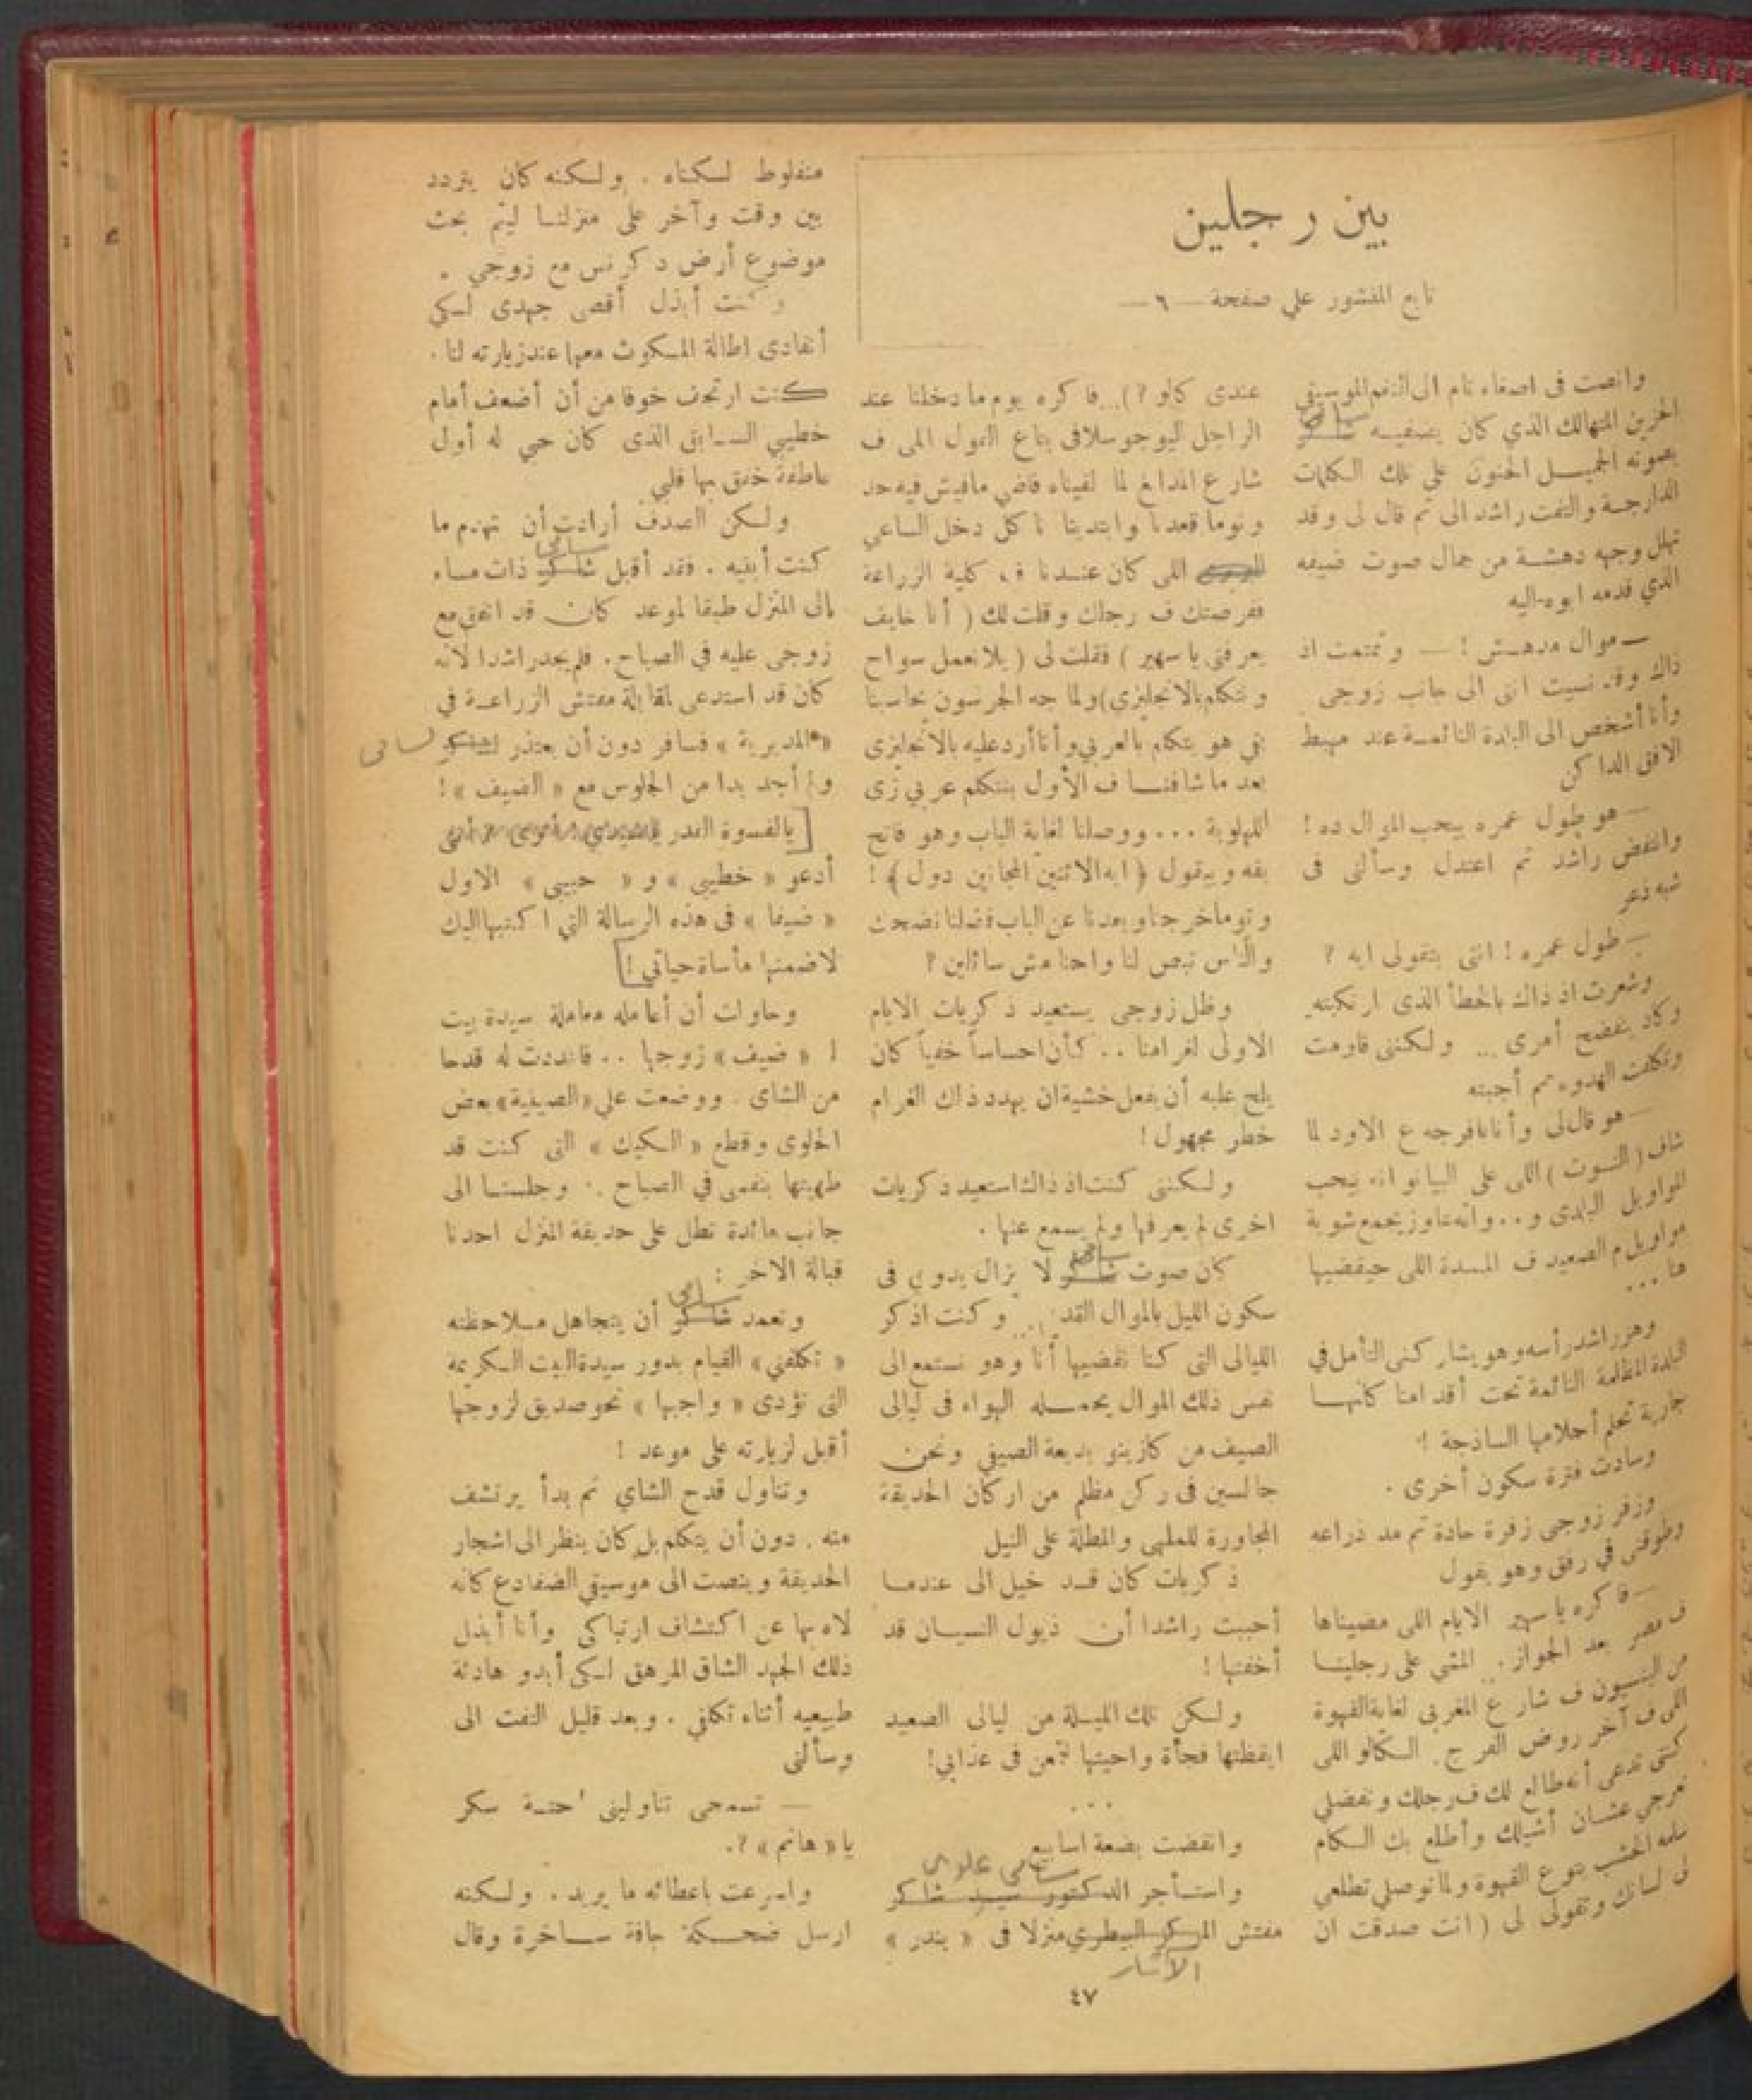 بين رجلين
تابع المنشور علي صفحة — ٦ —
وانصت فى اصغاء تام الى النغم الموسيقي
الحزين المتهالك الذي كان يضفيه شاكر سامى
بصوته الجميل الحنون علي تلك الكلمات
الدارجة والتفت راشد الى ثم قال لى وقد
تهلل وجهه دهشة من جمال صوت ضيفه
الذي قدمه ابوه اليه
— موال مدهش ! — وتمتمت اذ
ذاك وقد نسيت اننى الى جانب زوجي
وأنا أشخص الى البلدة النائمة عند مهبط
الافق الداكن
— هو طول عمره بيحب الموال ده !
وانتفض راشد ثم اعتدل وسألنى فى
شبه ذعر
— طول عمره ! انتى بتقولى ايه ؟
وشعرت اذ ذاك بالخطأ الذى ارتكبته
وكاد يفضح أمرى ... ولكننى قاومت
وتكلفت الهدوء ثم أجبته
— هو قال لى وأنا بافرجه ع الاود لما
شاف ( النوت ) اللى على البيانو انه بيحب
المواويل البلدى و .. وانه عاوز يجمع شوية
مواويل م الصعيد ف المدة اللى حيقضيها
هنا ...
وهز راشد رأسه وهو يشاركنى التأمل في
البلدة المظلمة النائمة تحت أقدامنا كأنها
جارية تحلم أحلامها الساذجة !
وسادت فترة سكون أخرى .
وزفر زوجى زفرة حادة ثم مد ذراعه
وطوقنى في رفق وهو يقول
— فاكره يا سهير الايام اللى مضيناها
ف مصر بعد الجواز . المشي على رجلينا
من البنسيون ف شارع المغربي لغاية القهوة
اللى ف آخر روض الفرج . الكالو اللى
كنتى تدعى أنه طالع لك ف رجلك وتفضلي
تعرجي عشان أشيلك وأطلع بك السلالم
الخشب بتوع القهوة ولما توصلي تطلعي
لى لسانك وتقولى لى ( انت صدقت ان
عندى كالو ؟ ) ... فاكره يوم ما دخلنا عند
الراجل اليوجوسلافى بتاع الفول اللى ف
شارع المدابغ لما لقيناه فاضي مافيش فيه حد
ونوما قعدنا وابتدينا ناكل دخل الساعي
اللى كان عندنا ف كلية الزراعة
فقرصتك ف رجلك وقلت لك ( أنا خايف
يعرفنى يا سهير ) فقلت لى ( يلا نعمل سواح
ونتكلم بالانجليزي ) ولما جه الجرسون يحاسبنا
بقي هو يتكلم بالعربي وأنا أرد عليه بالانجليزى
بعد ما شافنا ف الأول بنتكلم عربي زى
اللهلوبة ... ووصلنا لغاية الباب وهو فاتح
بقه وبيقول ( ايه الاتنين المجانين دول ) !
ونوما خرجنا وبعدنا عن الباب فضلنا نضحك
والناس تبص لنا واحنا مش سائلين ؟
وظل زوجى يستعيد ذكريات الايام
الاولى لغرامنا .. كأن احساساً خفياً كان
يلح عليه أن يفعل خشية ان يهدد ذاك الغرام
خطر مجهول !
ولكننى كنت اذ ذاك استعيد ذكريات
اخرى لم يعرفها ولم يسمع عنها .
كان صوت شاكر سامى لا يزال يدوي فى
سكون الليل بالموال القديم .. وكنت اذكر
الليالى التى كنا نقضيها أنا وهو نستمع الى
نفس ذلك الموال يحمله الهواء فى ليالى
الصيف من كازينو بديعة الصيفي ونحن
جالسين فى ركن مظلم من اركان الحديقة
المجاورة للملهى والمطلة على النيل
ذكريات كان قد خيل الى عندما
أحببت راشدا أن ذيول النسيان قد
أخفتها !
ولكن تلك الليلة من ليالى الصعيد
ايقظتها فجأة واحيتها لتمعن فى عذابي !
...
وانقضت بضعة اسابيع
واستأجر الدكتور سيد شاكر سامى علوى
مفتش المركز البيطري الآثار منزلا فى « بندر »
منفلوط لسكناه . ولكنه كان يتردد
بين وقت وآخر على منزلنا ليتم بحث
موضوع أرض دكرنس مع زوجي .
وكنت أبذل أقصى جهدى لكي
أتفادى اطالة المكوث معهما عند زيارته لنا .
كنت ارتجف خوفا من أن أضعف أمام
خطيبي السابق الذى كان حبي له أول
عاطفة خفق بها قلبي
ولكن الصدف أرادت أن تهدم ما
كنت أبنيه . فقد أقبل شاكر سامى ذات مساء
إلى المنزل طبقا لموعد كان قد اتفق مع
زوجى عليه في الصباح . فلم يجد راشدا لانه
كان قد استدعى لمقابلة مفتش الزراعة في
« المديرية » فسافر دون أن يعتذر لشاكر لسامى
ولم أجد بدا من الجلوس مع « الضيف » !
[ يا لقسوة القدر
أدعو « خطيبي » و « حبيبي » الاول
« ضيفا » فى هذه الرسالة التي اكتبها اليك
لاضمنها مأساة حياتي ! ]
وحاولت أن أعامله معاملة سيدة بيت
لـ « ضيف » زوجها .. فاعددت له قدحا
من الشاى . ووضعت على « الصينية » بعض
الحلوى وقطع « الكيك » التى كنت قد
طهيتها بنفسى في الصباح .. وجلسنا الى
جانب مائدة تطل على حديقة المنزل احدنا
قبالة الاخر :
وتعمد شاكر سامى أن يتجاهل ملاحظته
« تكلفي » القيام بدور سيدة البيت الكريمة
التى تؤدى « واجبها » نحو صديق لزوجها
أقبل لزيارته على موعد !
وتناول قدح الشاي ثم بدأ يرتشف
منه . دون أن يتكلم بل كان ينظر الى اشجار
الحديقة وينصت الى موسيقي الضفادع كانه
لاه بها عن اكتشاف ارتباكى وأنا أبذل
ذلك الجهد الشاق المرهق لكى أبدو هادئة
طبيعيه أثناء تكلفي . وبعد قليل التفت الى
وسألنى
— تسمحى تناولينى حتة سكر
يا « هانم » ؟ .
واسرعت باعطائه ما يريد . ولكنه
ارسل ضحكة جافة ساخرة وقال
٤٧